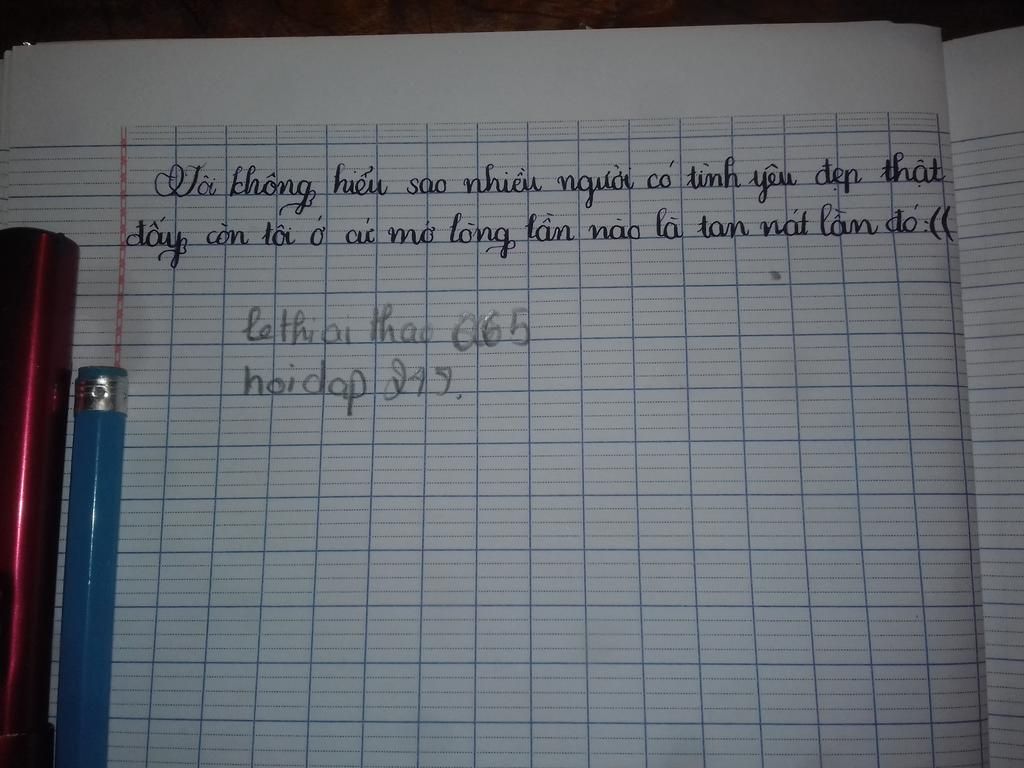 Tôi không hiểu sao nhiều người có tình yêu đẹp thật
đấy còn tôi ở cứ mở lòng lần nào là tan nát lắm đó:((
lethiai thao 665
hoidap 247.